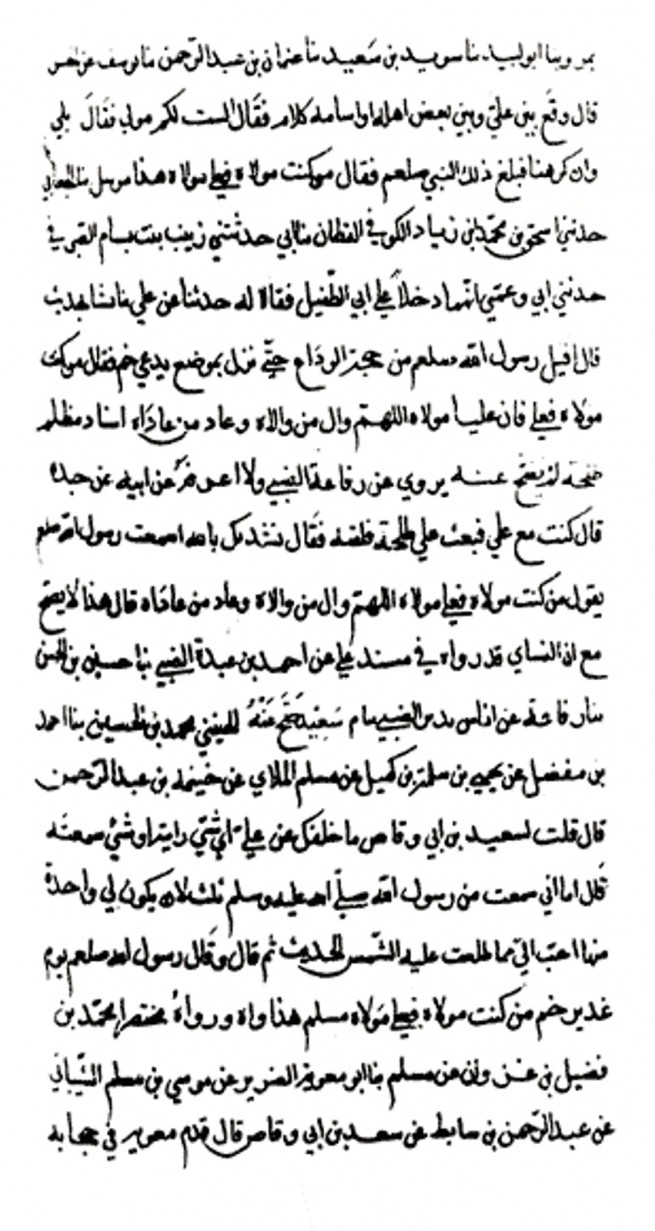 ابو لبيد نا سويد بن سعيد نا عثمان بن عبد الرحمن نا يوسف عن
قال وقع بين علي وبين بعض اهله او اسامة كلام فقال الست لكم مولى فقال بلى
وان كرهنا فبلغ ذلك النبي صلعم فقال من كنت مولاه فعلي مولاه هذا مرسل
حدثني اسحق بن محمد بن زياد الكوفي القطان نا ابي حدثتني زينب بنت بسام
حدثني ابي وعمي انهما دخلا علي ابي الطفيل فقالا له حدثنا عن علي بحديث
قال اقبل رسول الله صلعم من حجة الوداع حتى نزل بموضع يدعى خم فقال من كنت
مولاه فعلي فان عليا مولاه اللهم وال من والاه وعاد من عاداه اسناد مظلم
يروي عن رفاعة الضبي ولا اعرفه عن ابيه عن جده
قال كنت مع علي فبعث علي طلحة فلقيه فقال ننشدكل بالله اسمعت رسول الله صلعم
يقول من كنت مولاه فعلي مولاه اللهم وال من والاه وعاد من عاداه قال هذا لا يصح
مع ان النساي قد رواه في مسند علي عن احمد بن عبدة الضبي نا حسين بن الحسن
نا رفاعة عن اياس بن الضبي محمد بن الحسين نا احمد
بن مفضل عن يحيى بن سلمة بن كهيل عن مسلم الملاي عن خيثمة بن عبد الرحمن
قال قلت لسعيد بن ابي وقاص ما خلفك عن علي اي شي رايته او شي سمعته
قال اما اني سمعت من رسول الله صلى الله عليه وسلم ثلث لان يكون لي واحدة
منها احب الي مما طلعت عليه الشمس الحديث ثم قال وقال رسول الله صلعم يوم
غدير خم من كنت مولاه فعلي مولاه مسلم هذا واه ورواه مختصرا محمد بن
فضيل بن غزوان عن مسلم نا ابو معوية الضرير عن موسى بن مسلم الشيباني
عن عبد الرحمن بن سابط عن سعد بن ابي وقاص قال قدم معوية في